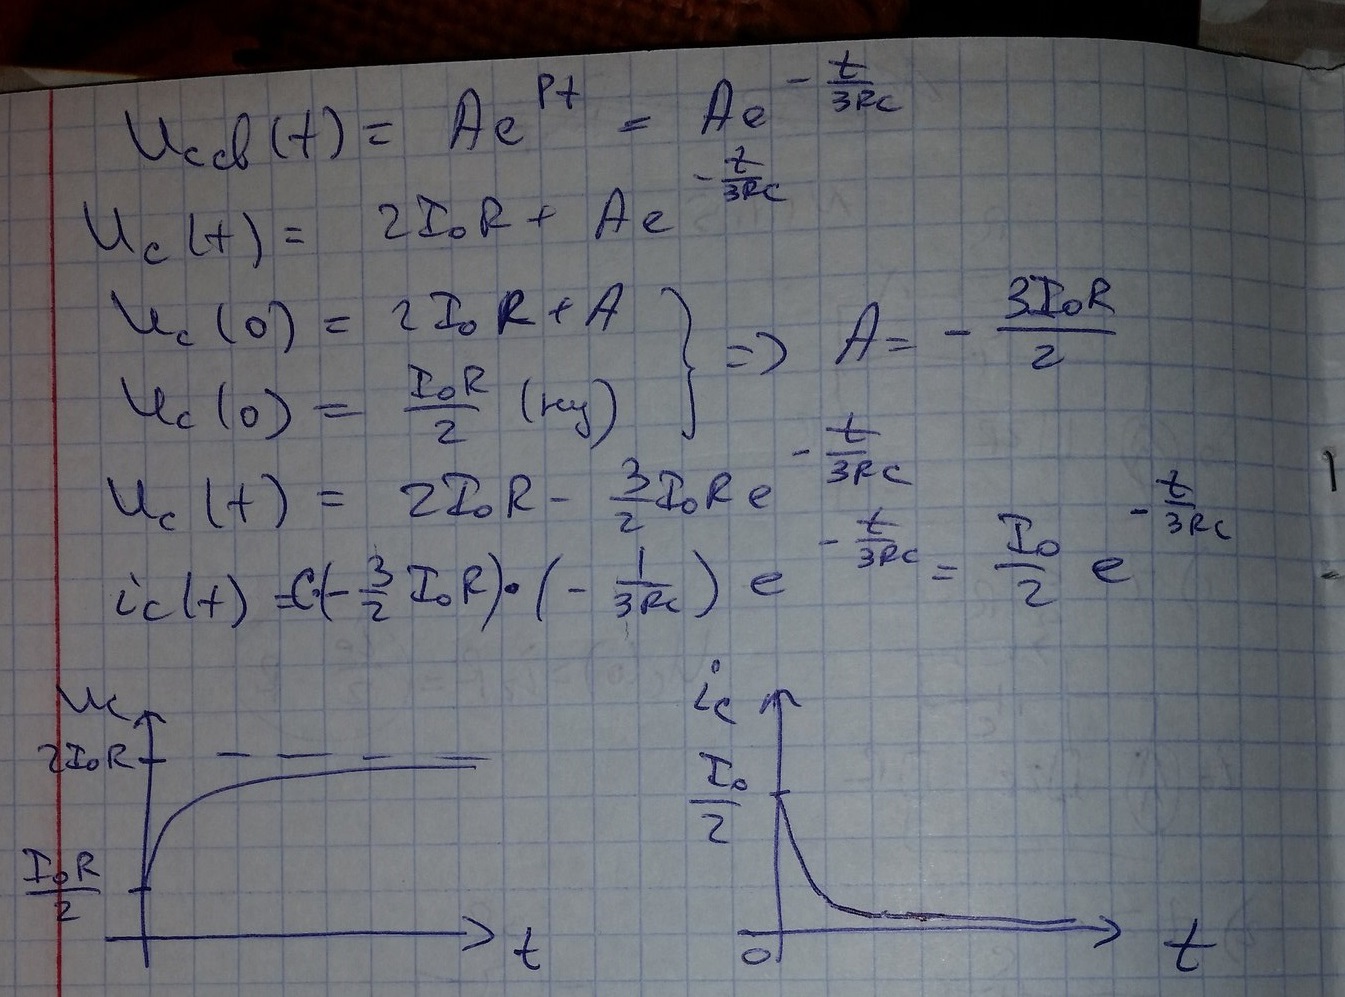 U_cсв(t) = Ae^{pt} = Ae^{-t/3RC}
U_c(t) = 2I₀R + Ae^{-t/3RC}
U_c(0) = 2I₀R + A
U_c(0) = I₀R/2 (ну) } => A = - 3I₀R/2
U_c(t) = 2I₀R - 3/2 I₀R e^{-t/3RC}
i_c(t) = C·(-3/2 I₀R)·(-1/3RC) e^{-t/3RC} = I₀/2 e^{-t/3RC}
U_c
2I₀R
I₀R/2
t
i_c
I₀/2
0
t